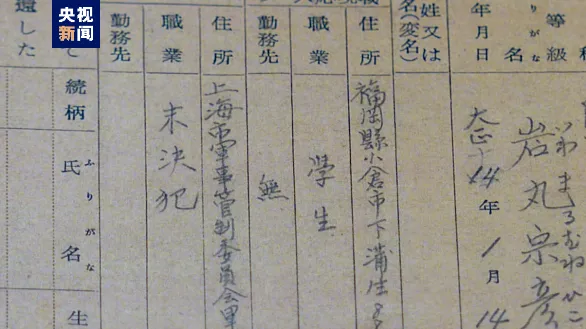 央视新闻
等級
ふりがな
名
いわまるむねひこ
岩丸宗彦
年月日
大正14年1月14
姓又は
名(変名)
住所
福岡縣小倉市下蒲生
職業
學生
勤務先
無
住所
上海市軍事管制委員会里
職業
未決犯
勤務先
と
ふりがな
氏名
生
還した
続柄